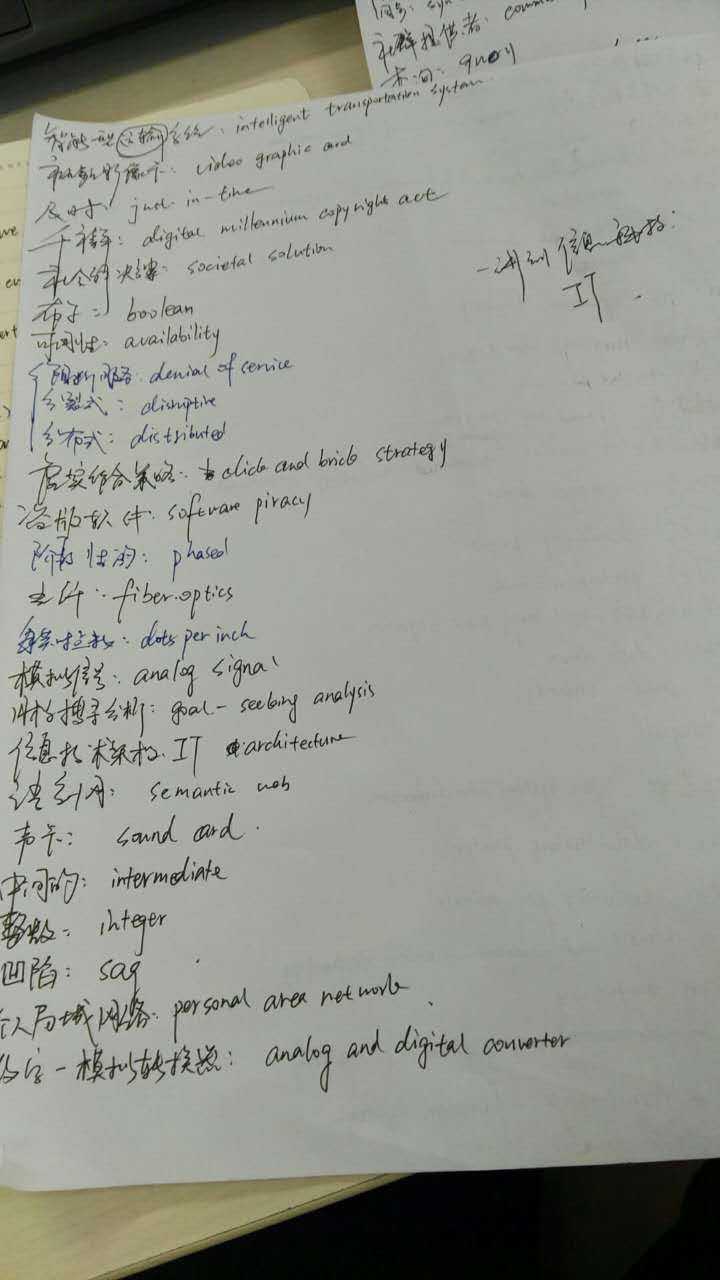 社群提供者: comm
查询: query
智能型运输系统: intelligent transportation system
影像卡: video graphic card
及时: just-in-time
千禧年: digital millennium copyright act
社会的决策: societal solution
布子: boolean
可用性: availability
阻断服务: denial of service
分裂式: disruptive
分布式: distributed
虚实结合策略: click and brick strategy
盗版软件: software piracy
阶段性的: phased
光纤: fiber.optics
dots per inch
模拟信号: analog signal
搜寻分析: goal-seeking analysis
信息技术架构: IT architecture
semantic web
声卡: sound card.
中间的: intermediate
整数: integer
凹陷: sag
个人局域网路: personal area network
数字-模拟转换器: analog and digital converter
一讲到信息科技:
IT.